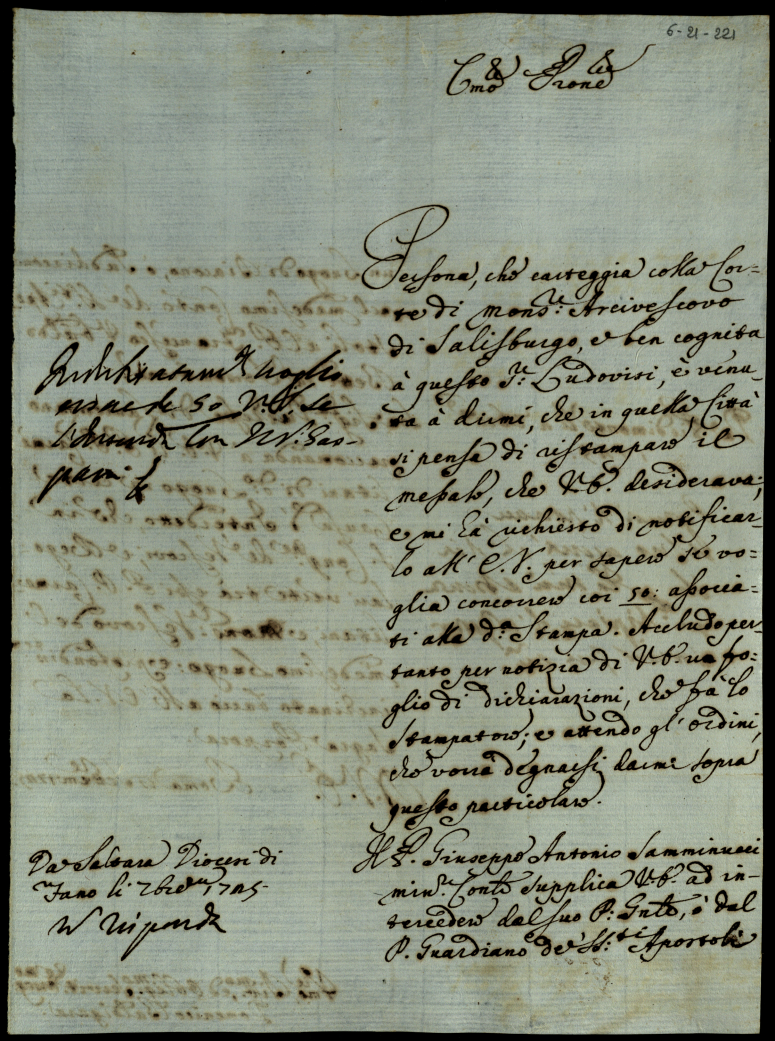 6-21-221
Em̃o Prone
Persona, che carteggia colla Cor=
te di mons.r Arcivescovo
di Salisburgo, e ben cognita
à questo S.r Ludovisi, è venu=
ta à dirmi, che in quella Città
si pensa di ristampare il
messale, che V.E. desiderava;
e mi hà richiesto di notificar=
lo all' E.V. per sapere se vo=
glia concorrere coi 50: associa=
ti alla d.a Stampa. Accludo per=
tanto per notizia di V.E. un fo=
glio di dichiarazioni, che fà lo
Stampatore; e attendo gl' ordini,
che vorrà degnarsi darmi sopra
questo particolare.
Il P. Giuseppe Antonio Samminucci
min.r Conv.le supplica V.E. ad in=
tercedere dal suo P: Gnle, ò dal
P. Guardiano de' SS.ti Apostoli
50
se
Con
Da Saltara Diocesi di
Fano li
Risponda